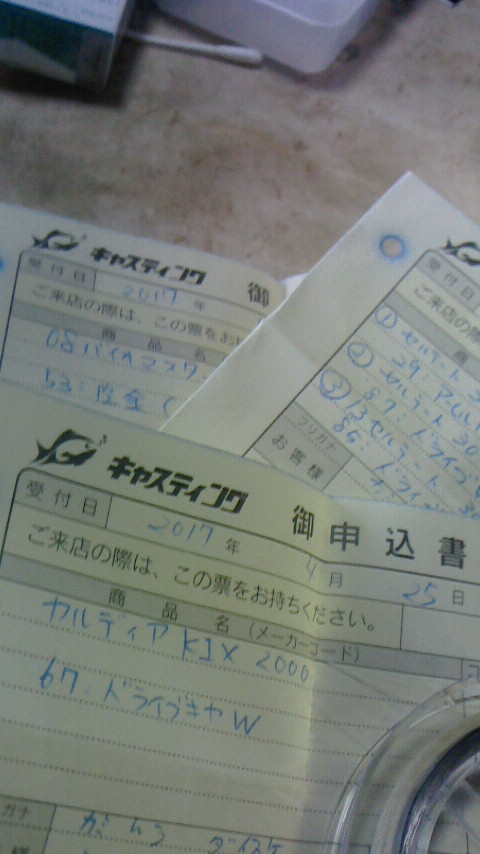 キャスティング 御
受付日 2017 年
ご来店の際は、この票をお
商品名
05バイオマスター
53:座金(
商
ご来店
① セルテート
②セルテート 30
87:ドライブ
③13セルテート
86:ドライブ
フリガナ
お客様
キャスティング 御申込書
受付日 2017 年 4 月 25 日
ご来店の際は、この票をお持ちください。
商品名 (メーカーコード)
カルディア KIX 2000
67:ドライブギヤW
ガチ
様
ダイスケ